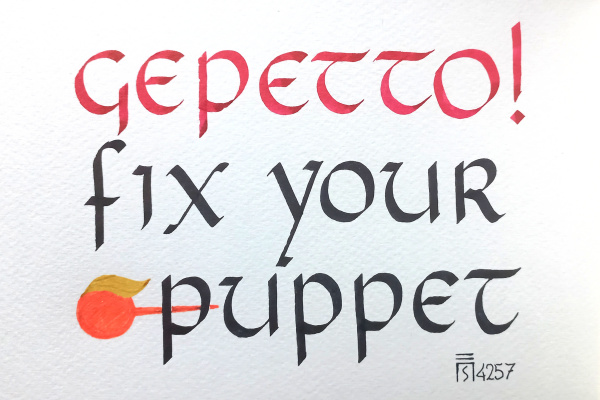 GEPETTO!
fix your
puppet
4257